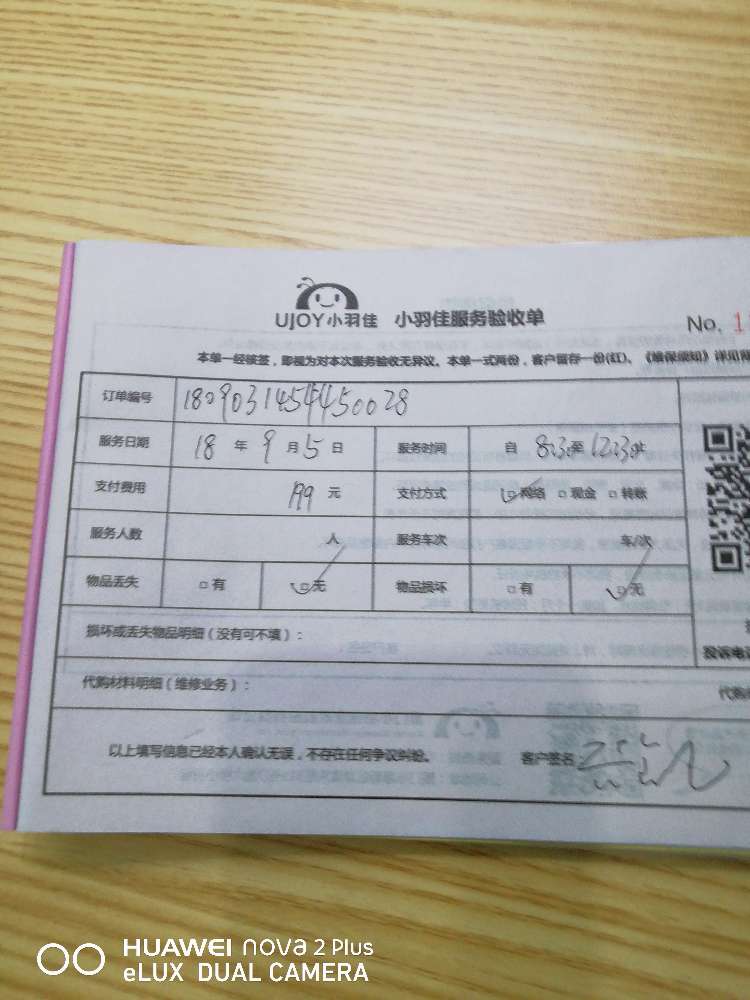 UJOY小羽佳 小羽佳服务验收单
No. 1
本单一经核签，即视为对本次服务验收无异议。本单一式两份，客户留存一份(红)、《维保须知》详见背
订单编号 1809031454450028
服务日期 18 年 9 月 5 日 服务时间 自 8:30 至 12:30 止
支付费用 199 元 支付方式 □网络 □现金 □转账
服务人数 人 服务车次 车/次
物品丢失 □有 □无 物品损坏 □有 □无
损坏或丢失物品明细（没有可不填）：
投诉电话
代购材料明细（维修业务）：
代购
以上填写信息已经本人确认无误，不存在任何争议纠纷。 客户签名
HUAWEI nova 2 Plus
eLUX DUAL CAMERA